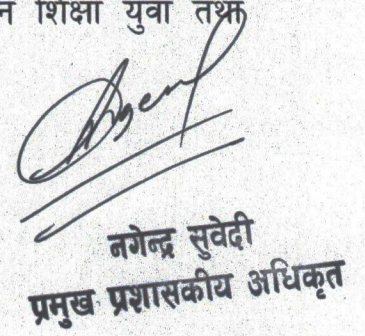 न शिक्षा युवा तथा
नगेन्द्र सुवेदी
प्रमुख प्रशासकीय अधिकृत